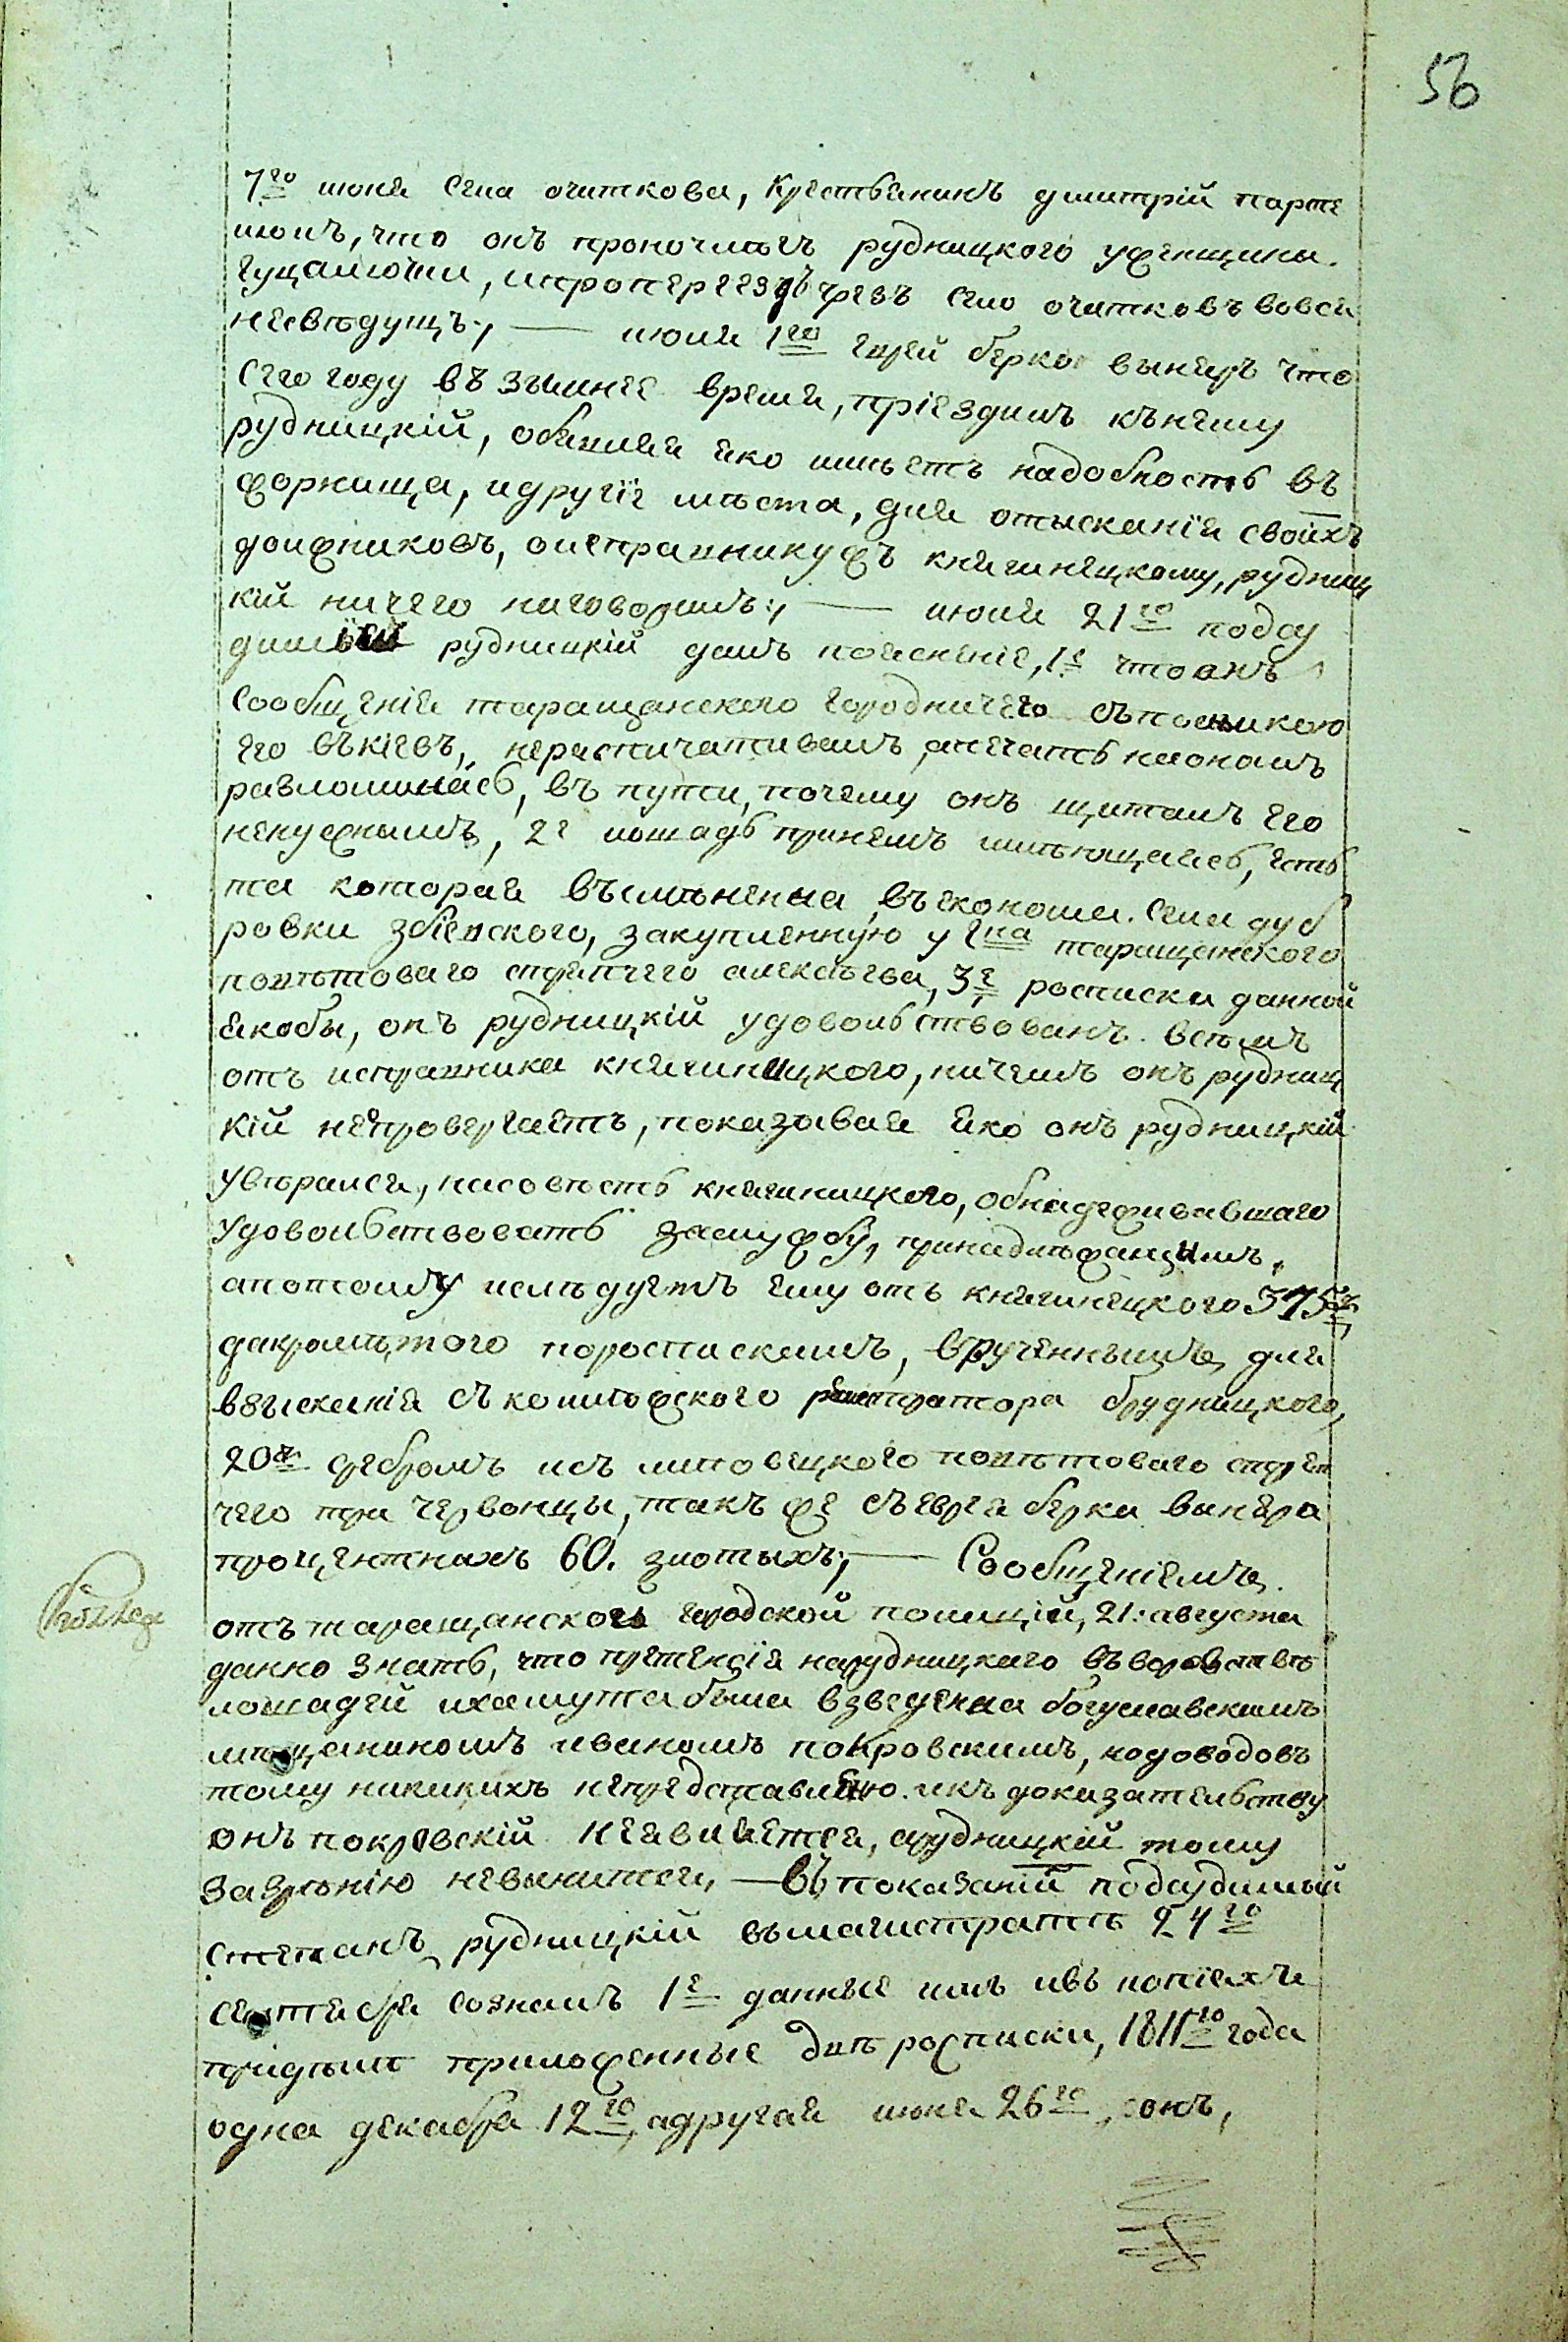 56
7го июня села очиткова, крестьянинъ дмитрій парте
моцъ, что онъ проночлегъ рудницкого уженщины
гуцалючки, ипропереездъ чрезъ село очитковъ вовся
несведущъ; — июля 1го еврей берко винеръ что
сего году въ зимнее время, пріездилъ кънему
рудницкій, обявляя яко имѣетъ надобность въ
форнища, идругіе мѣста, для отысканія своихъ
должниковъ, оисправникужъ княгинецкому, рудниц
кій ничего неговорилъ; — июля 21го подсу
димый рудницкій далъ поясненіе, 1е что онъ
сообщенія таращанского городничего съпосилкою
его въкіевъ, нераспичатывалъ, апечать наономъ
равломилась, въ пути, почему онъ щиталъ его
ненужнымъ, 2е лошадь принемъ имѣющаяся, есть
та которая вымѣненна въеконома села дуб
ровки збіевского, закупленную у его таращанского
повѣтоваго стряпчего алексѣева, 3е росписки данной
якобы, онъ рудницкій удовольствованъ всѣмъ
отъ исправника княгиницкого, ничемъ онъ рудниц
кій непровергаетъ, показывая яко онъ рудницкій
увѣрался, насовѣсть княгиницкого, обнадеживавшаго
удовольствовать заслужбу, принадлежащимъ,
апотому иследуетъ ему отъ княгинецкого 375
дакромѣ того поросспискамъ, врученнымъ для
взысканія съ колѣжского регистратора брудницкого,
20ть сребромъ исъ липовецкого повѣтоваго стряп
чего три червонцы, такъ же съеврея берка винера
процентнахъ 60. злотыхъ; — Сообщеніемъ
отъ таращанской городской полиціи, 21: августа
данно знать, что претенсія нарудницкого въворовствѣ
лошадей ихамута была взведенна богуславскимъ
мѣщаниномъ иваномъ покровскимъ, нодоводовъ
тому никикихъ непредставленно. икъ доказательству
онъ покровскій неявляется, арудницкій тому
зазрѣнію невинится, — Въ показаніи подсудимый
степанъ рудницкій вмагистратѣ 24го
сентября созналъ 1е данные имъ ивъ копіяхъ
придѣлѣ приложенные двѣ росписки, 1811го года
одна декабря 12го, адругая июня 26го,